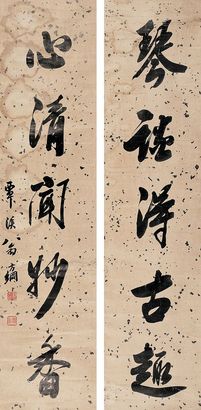 琴得古趣
心清聞妙香
覃溪翁方綱